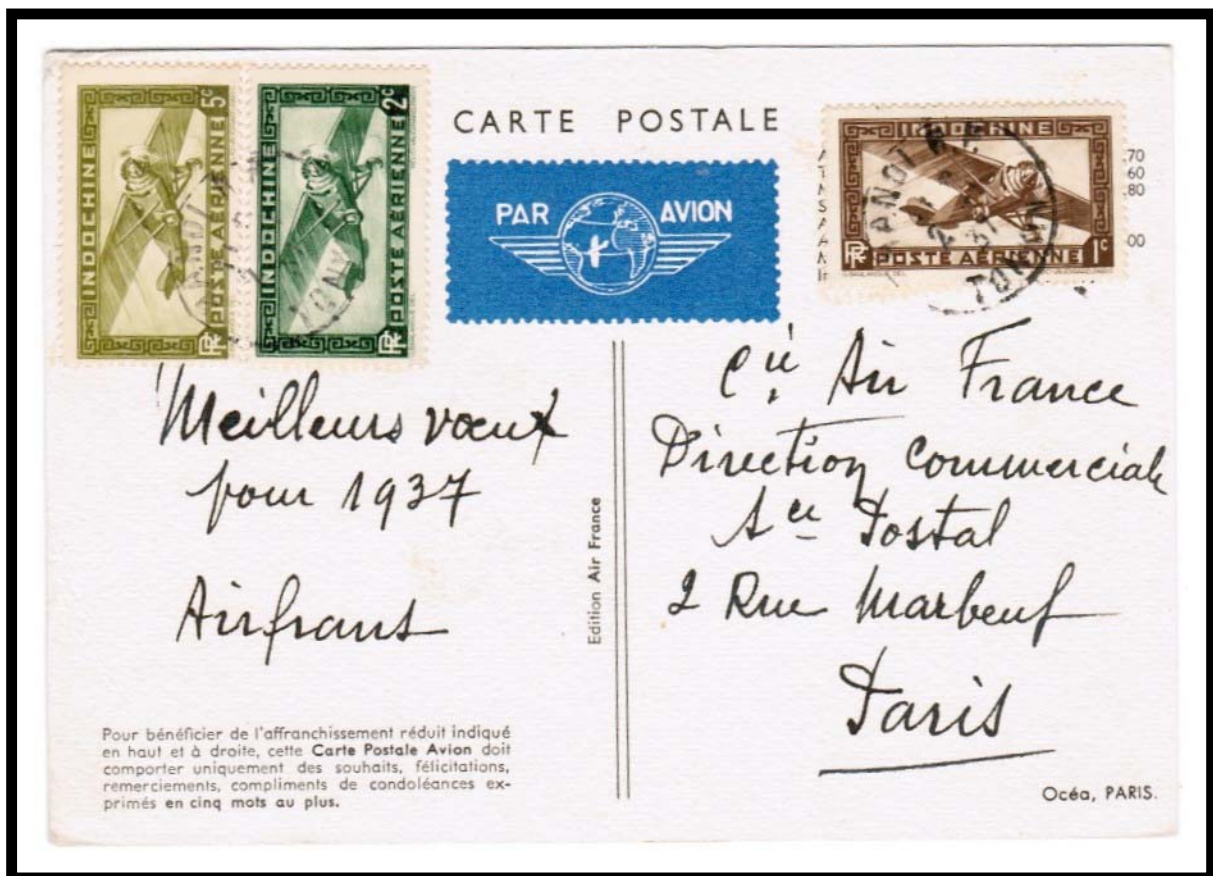 INDOCHINE
5c
RF POSTE AÉRIENNE
INDOCHINE
2c
RF POSTE AÉRIENNE
CARTE POSTALE
PAR AVION
INDOCHINE
RF POSTE AÉRIENNE 1c
HANOI
TONKIN
70
60
80
00
Meilleurs vœux
pour 1937
Airfrans
Edition Air France
Cie Air France
Direction Commerciale
Sce Postal
2 Rue Marbeuf
Paris
Pour bénéficier de l'affranchissement réduit indiqué
en haut et à droite, cette Carte Postale Avion doit
comporter uniquement des souhaits, félicitations,
remerciements, compliments de condoléances ex-
primés en cinq mots au plus.
Océa, PARIS.